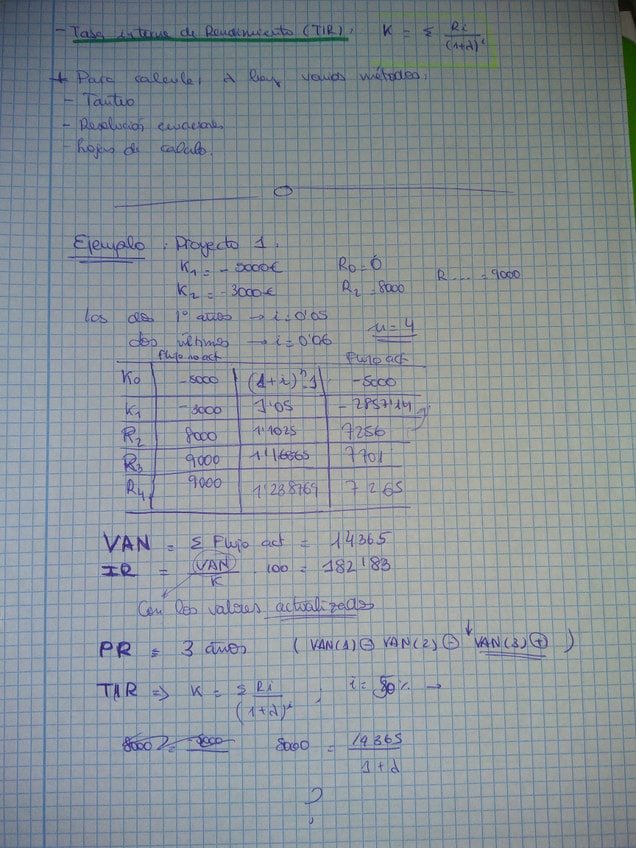 - Tasa interna de Rendimiento (TIR). K = Σ Ri / (1+λ)^i
* Para calcular λ hay varios métodos.
- Tanteo
- Resolución ecuaciones
- hojas de calculo.
Ejemplo. Proyecto 1.
K1 = -5000€ R0 = 0 R.... = 9000
K2 = -3000€ R2 = 8000
Los dos 1º años → i = 0'05
dos últimos → i = 0'06 n = 4
flujo no act Flujo act
K0 -5000 (1+i)^0 = 1 -5000
K1 -3000 1'05 -2857'14
R2 8000 1'1025 7256
R3 9000 1'16865 7701
R4 9000 1'238769 7265
VAN = Σ Flujo act = 14365
IR = VAN / K . 100 = 182'83
Con los valores actualizados
PR = 3 años ( VAN(1) ⊖ VAN(2) ⊖ VAN(3) ⊕ )
TIR => K = Σ Ri / (1+λ)^i ; i = 50% →
8000 = 8000 8000 = 14365 / 1+λ
?